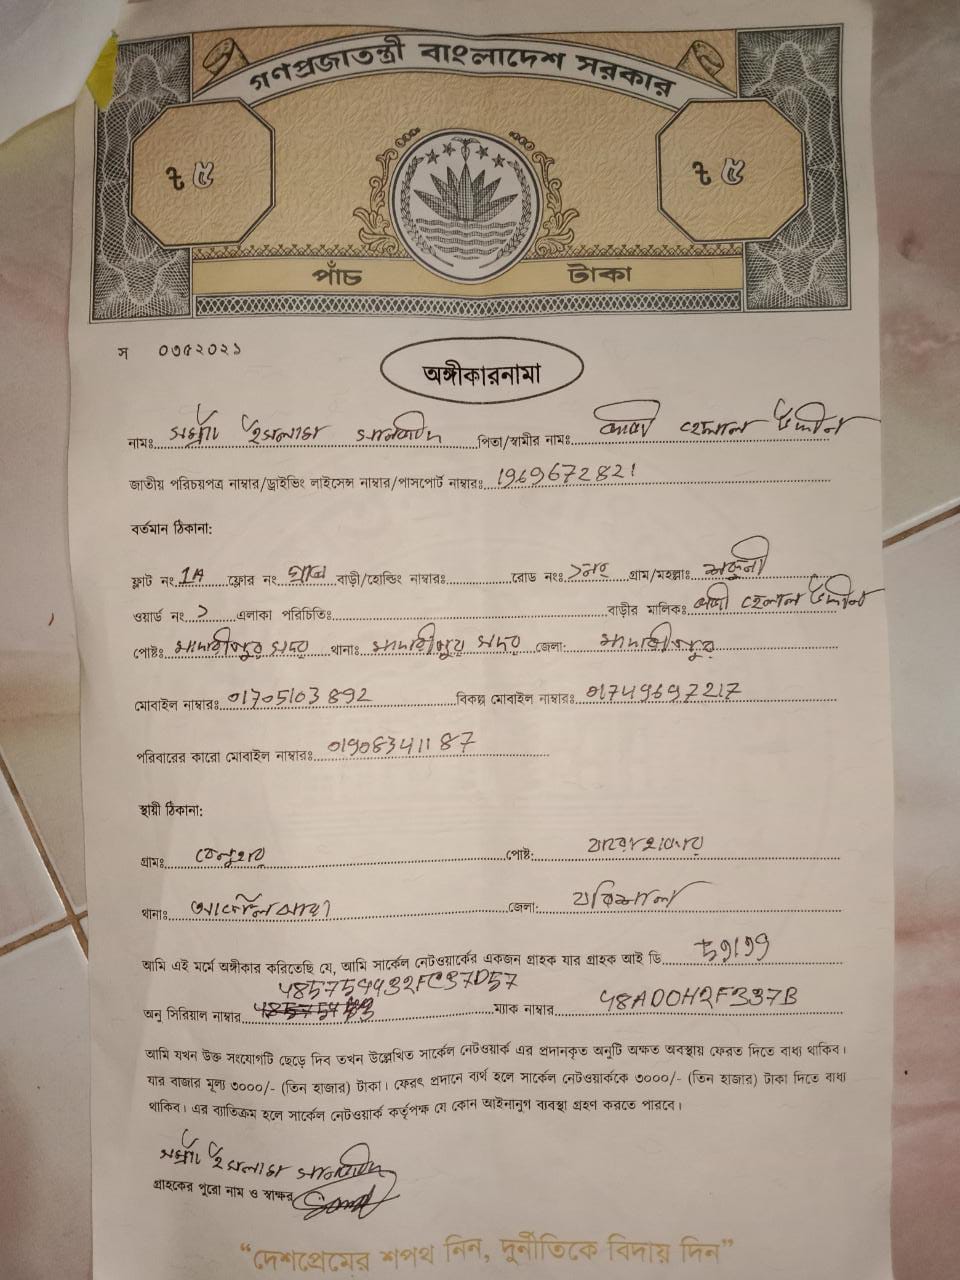 গণপ্রজাতন্ত্রী বাংলাদেশ সরকার
৳ ৫ ৳ ৫
পাঁচ টাকা
স ০৩৫২০২১
অঙ্গীকারনামা
নামঃ ইসলাম সানজিদ পিতা/স্বামীর নামঃ কাজী হেলাল উদ্দীন
জাতীয় পরিচয়পত্র নাম্বার/ড্রাইভিং লাইসেন্স নাম্বার/পাসপোর্ট নাম্বারঃ 1969672821
বর্তমান ঠিকানা:
ফ্লাট নং 1A ফ্লোর নং বাড়ী/হোল্ডিং নাম্বারঃ রোড নংঃ ১নং গ্রাম/মহল্লাঃ শকুনী
ওয়ার্ড নং ১ এলাকা পরিচিতিঃ বাড়ীর মালিকঃ কাজী হেলাল উদ্দীন
পোষ্টঃ মাদারীপুর সদর থানাঃ মাদারীপুর সদর জেলা: মাদারীপুর
মোবাইল নাম্বারঃ 01705103892 বিকল্প মোবাইল নাম্বারঃ 01749697217
পরিবারের কারো মোবাইল নাম্বারঃ 01908341187
স্থায়ী ঠিকানা:
গ্রামঃ পোষ্ট:
থানাঃ জেলা: বরিশাল
আমি এই মর্মে অঙ্গীকার করিতেছি যে, আমি সার্কেল নেটওয়ার্কের একজন গ্রাহক যার গ্রাহক আই ডি
485754432FC37D57
অনু সিরিয়াল নাম্বার ম্যাক নাম্বার 48AD0H2F337B
আমি যখন উক্ত সংযোগটি ছেড়ে দিব তখন উল্লেখিত সার্কেল নেটওয়ার্ক এর প্রদানকৃত অনুটি অক্ষত অবস্থায় ফেরত দিতে বাধ্য থাকিব।
যার বাজার মূল্য ৩০০০/- (তিন হাজার) টাকা। ফেরৎ প্রদানে ব্যর্থ হলে সার্কেল নেটওয়ার্ককে ৩০০০/- (তিন হাজার) টাকা দিতে বাধ্য
থাকিব। এর ব্যতিক্রম হলে সার্কেল নেটওয়ার্ক কর্তৃপক্ষ যে কোন আইনানুগ ব্যবস্থা গ্রহণ করতে পারবে।
ইসলাম সানজিদ
গ্রাহকের পুরো নাম ও স্বাক্ষর
“দেশপ্রেমের শপথ নিন, দুর্নীতিকে বিদায় দিন”